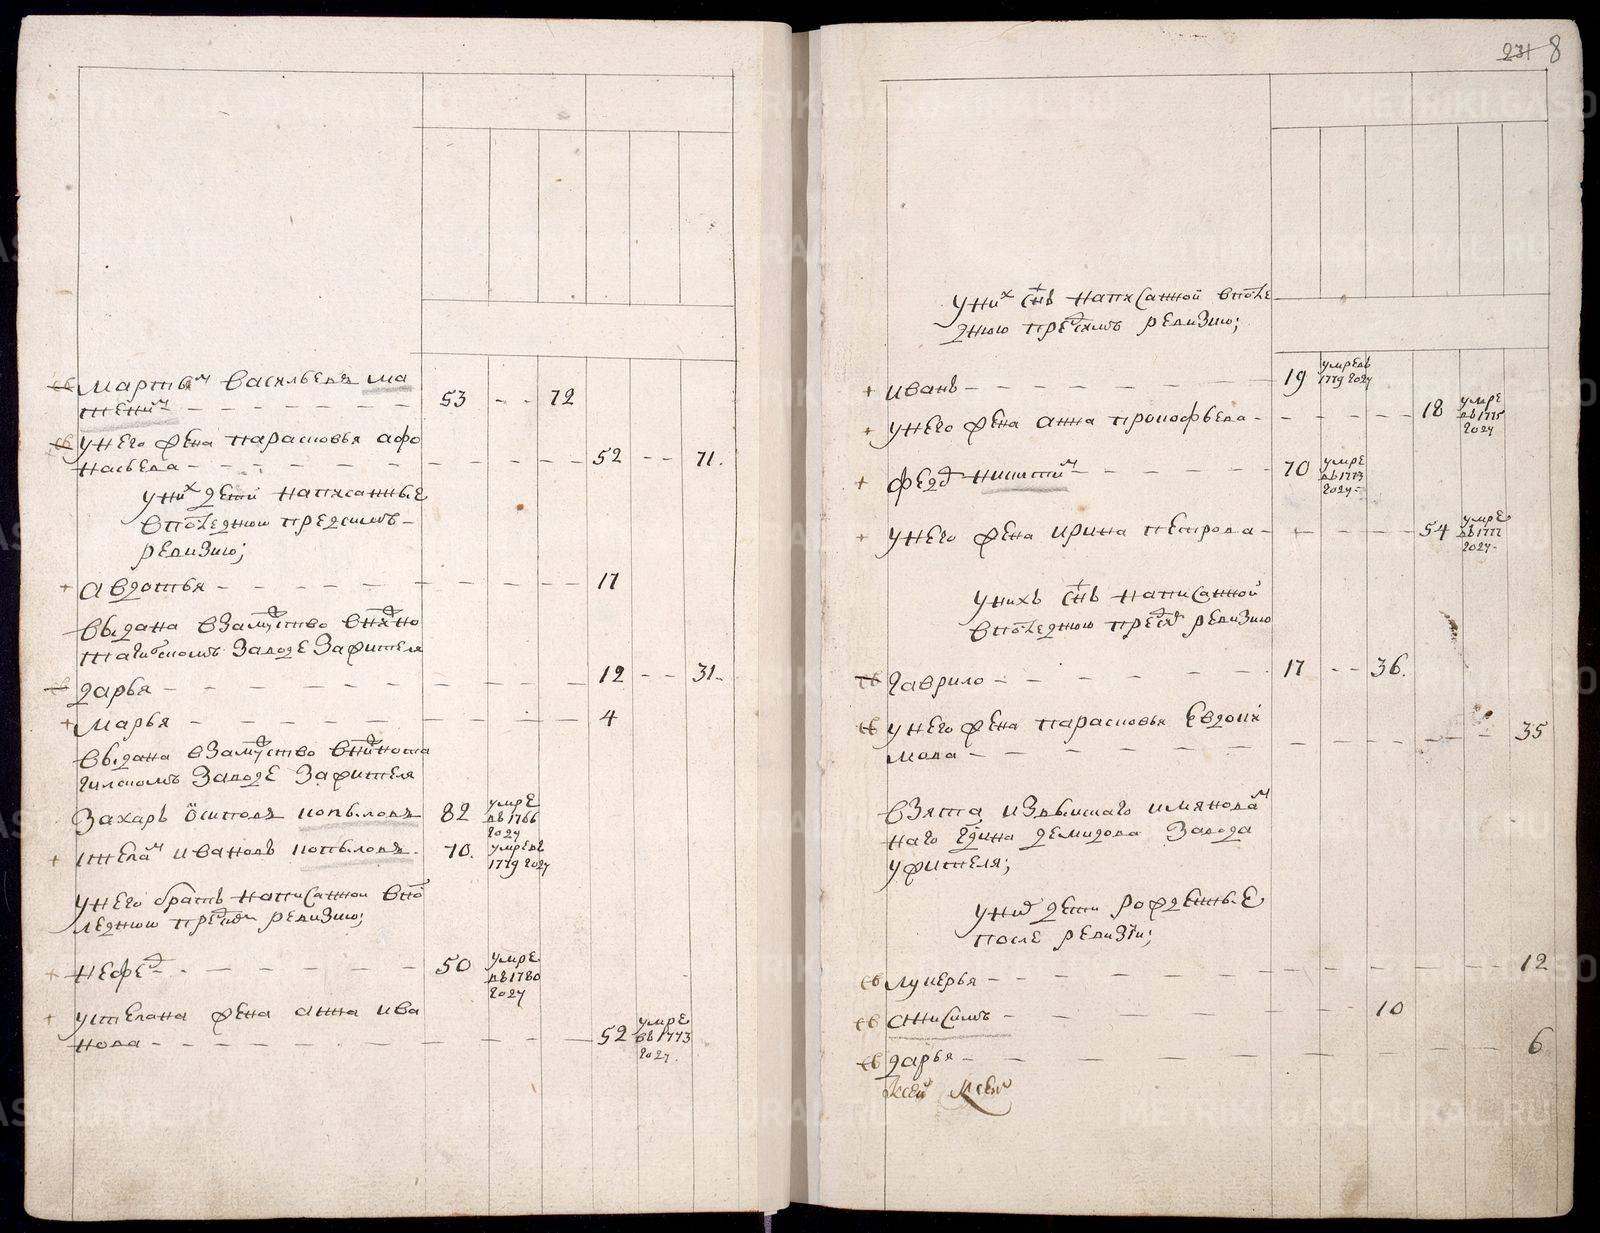 мартынъ васильевъ ма
тѣнинъ - - - - - 53 - - 72
унего жена парасковья афо
насьева - - - - - 52 - - 71.
уних дети написанные
впоследнюю предсимъ
ревизию;
авдотья - - - - - 17
выдана взамужство внижно
тагильскомъ заводе зажителя
дарья - - - - - 12 - - 31.
марья - - - - - 4
выдана взамужство внижнота
гилскомъ заводе зажителя
захаръ осиповъ копыловъ 82 умре
въ1766
году
степанъ ивановъ копыловъ. 70. умревъ
1779 году
унего братъ написанной впо
следнюю предсим ревизию;
нефед - - - - - 50 умре
въ1780
году
устепана жена анна ива
нова - - - - - 52 умре
въ1773
году.
8
уних снъ написанной впосле
днюю предсимъ ревизию;
иванъ - - - - - 19 умревъ
1779 году
унего жена анна прокофьева - - - - - 18 умре
въ1775
году
федо никитин - - - - - 70 умре
въ1773
году
унего жена ирина петрова - - - - - 54 умре
въ1777
году
унихъ снъ написанной
впоследнюю предсим ревизию
гаврило - - - - - 17 - - 36.
унего жена парасковья евдоки
мова - - - - - 35
взята издвышаго имянова
наго демидова завода
ужителя;
уних дети рожденные
после ревизии;
лукерья - - - - - 12
анисимъ - - - - - 10
дарья - - - - - 6
METRIKI.GASO-URAL.RU